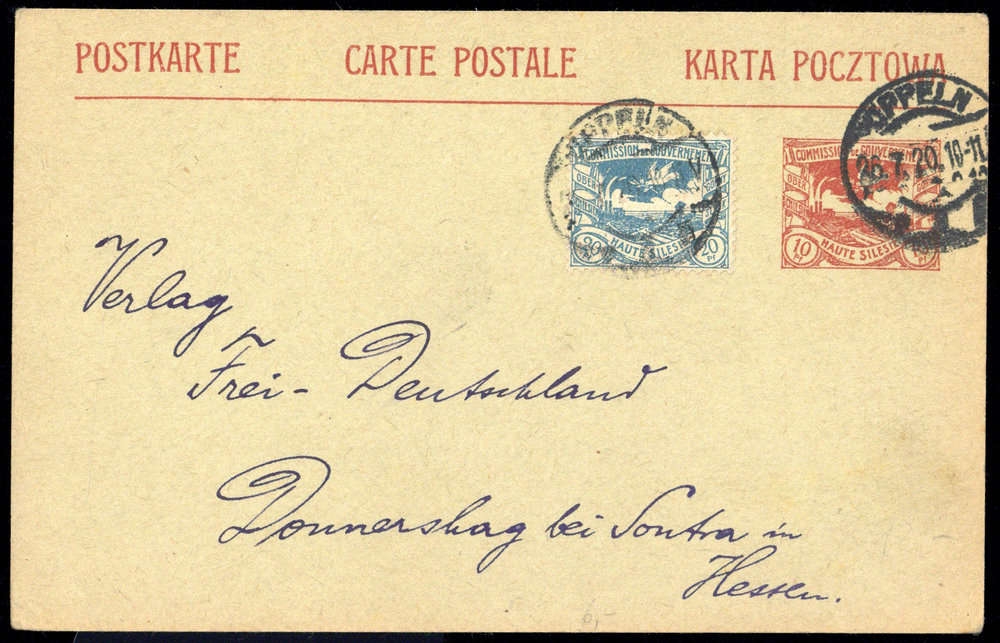 POSTKARTE CARTE POSTALE KARTA POCZTOWA
OPPELN
OPPELN
26.7.20.10-11
COMMISSION DE GOUVERNEMENT
OBER
SCHLESIEN
HAUTE SILESIE
20 20
PF
COMMISSION DE GOUVERNEMENT
OBER
SCHLESIEN
HAUTE SILESIE
10
PF
Verlag
Frei-Deutschland
Donnershag bei Sontra in
Hessen.